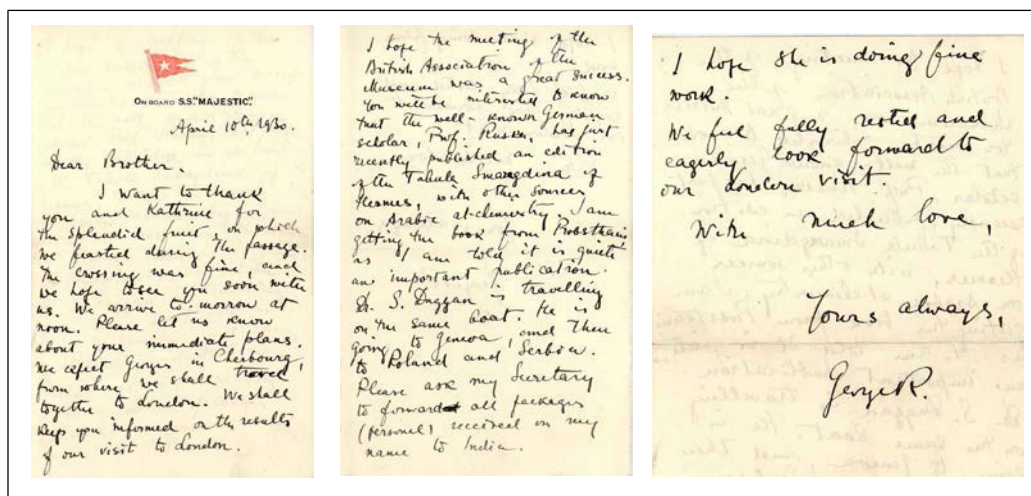 ON BOARD S.S. "MAJESTIC".
April 10th, 1930.
Dear Brother.
I want to thank
you and Kathrine for
the splendid fruit, on which
we feasted during the passage.
The crossing was fine, and
we hope to see you soon with
us. We arrive to-morrow at
noon. Please let us know
about your immediate plans.
We expect Georges in Cherbourg,
from where we shall travel
together to London. We shall
keep you informed on the results
of our visit to London.
I hope the meeting of the
British Association of the
Museum was a great success.
You will be interested to know
that the well-known German
scholar, Prof. Ruska, has just
recently published an edition
of the Tabula Smaragdina of
Hermes, with other sources
on Arabic al-chemistry. I am
getting the book from Probsthain
as I am told it is quite
an important publication.
Dr. S. Duggan is travelling
on the same boat. He is
going to Geneva, and then
to Poland and Serbia.
Please ask my Secretary
to forward all packages
(personel) received on my
name to India.
I hope she is doing fine
work.
We feel fully rested and
eagerly look forward to
our London visit.
With much love,
Yours always,
George R.